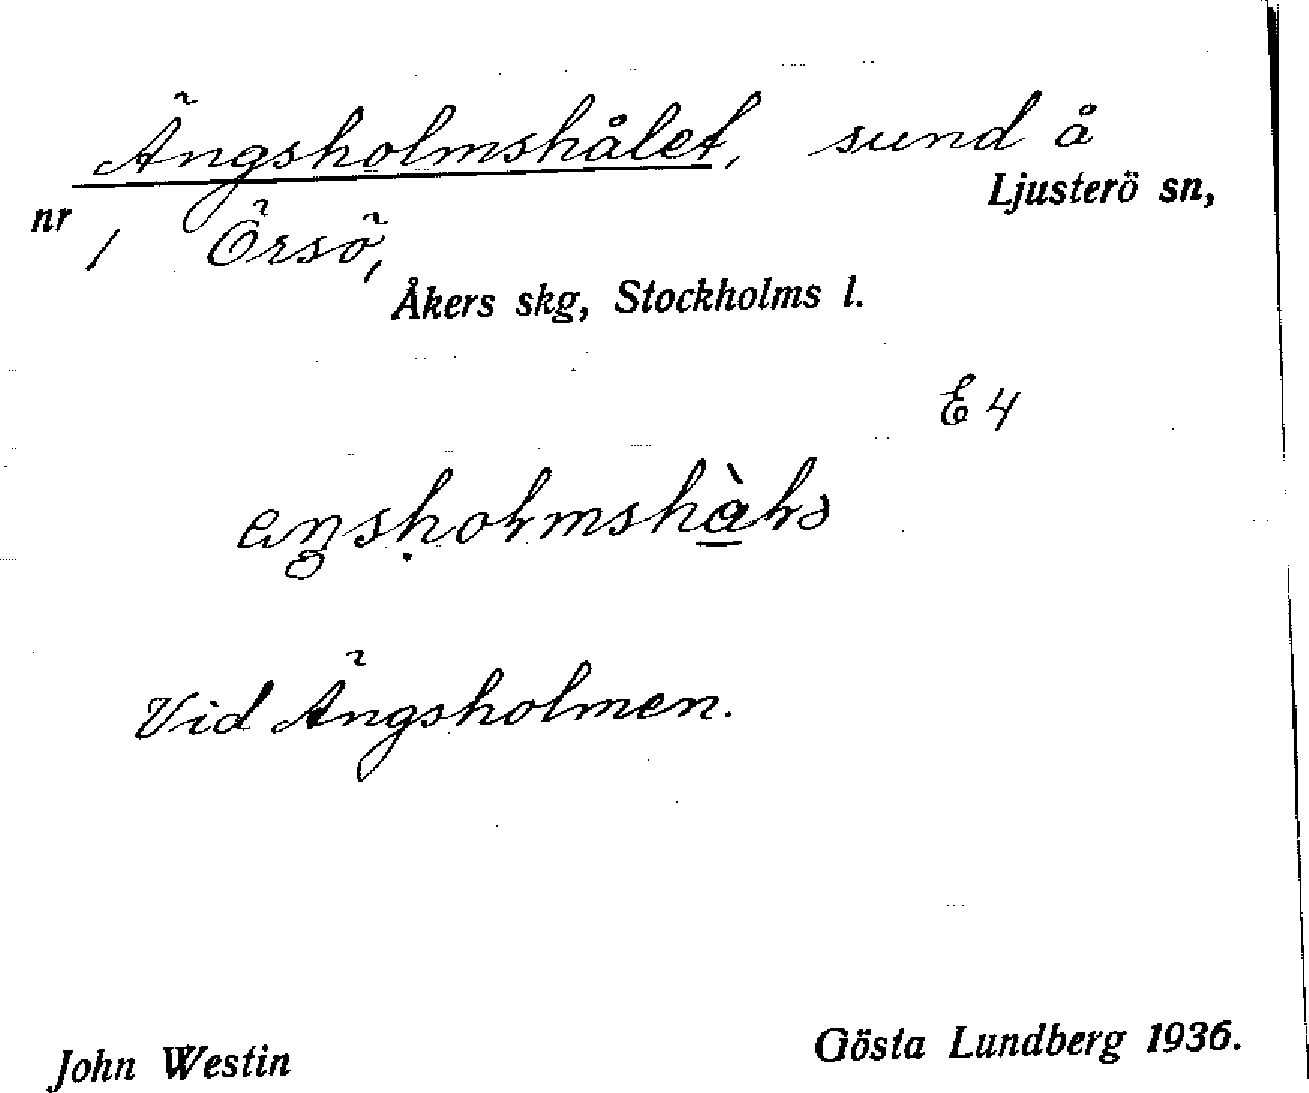 Ängsholmshålet, sund å
Ljusterö sn,
nr 1 Örsö,
Åkers skg, Stockholms l.
E 4
Vid Ängsholmen.
John Westin
Gösta Lundberg 1936.